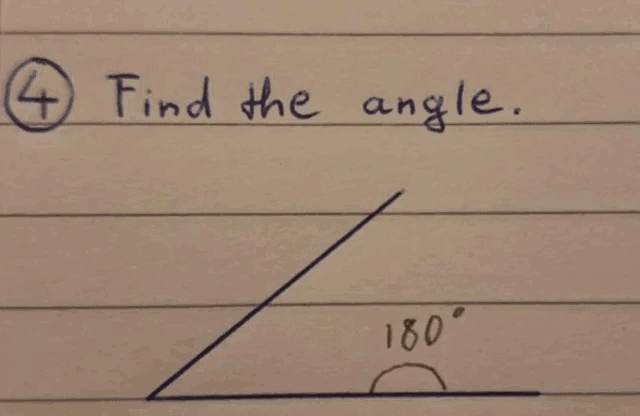 ④ Find the angle.
180°